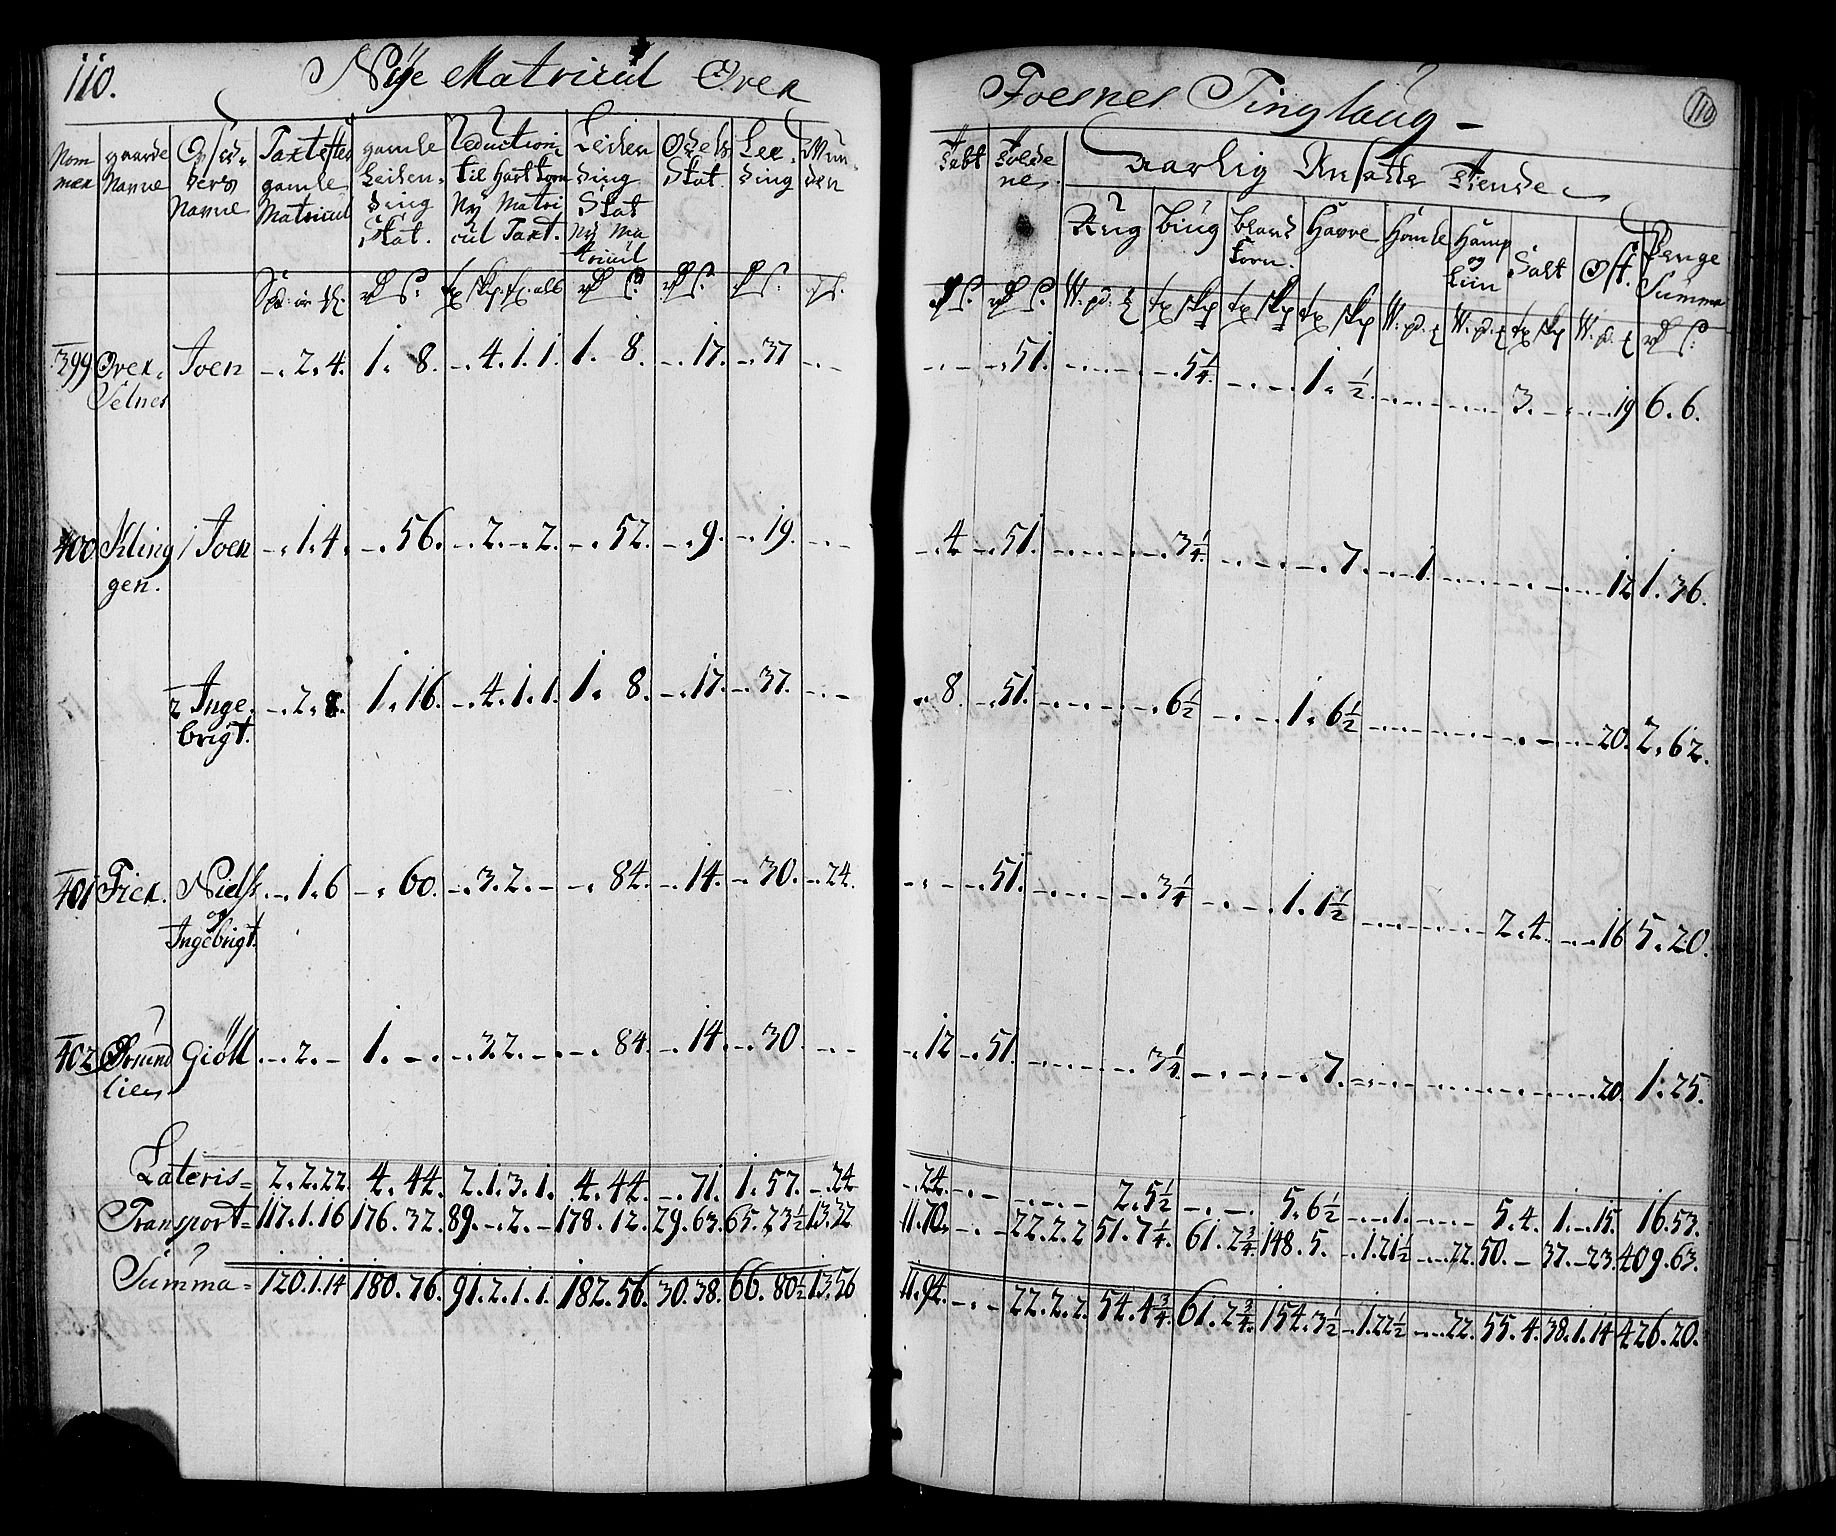 110. Nÿe Matricul Over Foesnes Tinglaug 110
Nommer
gaarde Navne
Opsidernes Navne
Taxt efter gamle Matricul
gamle Leilending Skat.
Reduction til Hartkorn Ny Matricul Taxt.
Leilending Skat Ny Matricul
Odels Skat.
Leeding
Aarlig Ansatte Tiende
Rug
biug
bland korn.
Havre
Homle
Hamp og Liin
Salt
Ost.
Penge Summa
399 Over Selnes Joen -. 2. 4. 1. 8. -. 4. 1. 1. 1. 8. -. 17. -. 37 -. 51. 5¼ 1. ½ 3. 19 6. 6.
400 Klingen. 1 Joen -. 1. 4. -. 56. -. 2. -. 2. -. 52. -. 9. -. 19. -. 4. -. 51. 3¼ 7. 1. 12 1. 36.
2 Ingebrigt. -. 2. 8. 1. 16. -. 4. 1. 1. 1. 8. -. 17. -. 37. -. 8. -. 51. 6½ 1. 6½ 20. 2. 62.
401 Frier. Niels og Ingebrigt. -. 1. 6 -. 60. -. 3. 2. - -. 84. -. 14. -. 30. -. 24. -. 51. 3¼ 1. 1½ 2. 4. 16 5. 20.
402 Giöll -. 2. - 1. -. -. 3. 2. - -. 84. -. 14. -. 30. -. 12 -. 51. 3¼ 7. 20. 1. 25.
Lateris = 2. 2. 22. 4. 44. 2. 1. 3. 1. 4. 44. -. 71. 1. 57. -. 24 -. 24. 2. 5½ 5. 6½ 1. 5. 4. 1. -. 15. 16. 53.
Transport = 117. 1. 16 176. 32. 89. -. 2. - 178. 12. 29. 63. 65. 23½ 13. 32 11. 70. 22. 2. 2 51. 7¼. 61. 2¾ 148. 5. -. 1. 21½ 22. 50. - 37. -. 23. 409. 63.
Summa = 120. 1. 14 180. 76. 91. 2. 1. 1. 182. 56. 30. 38. 66. 80½ 13. 56 11. 94. 22. 2. 2. 54. 4¾ 61. 2¾ 154. 3½ -. 1. 22½ 22. 55. 4. 38. 1. 14 426. 20.